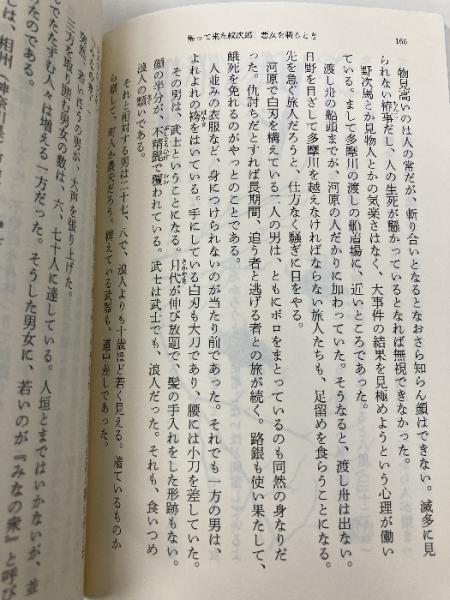 帰って来た紋次郎　悪女を斬るとき
166
物見高いのは人の常だが、斬り合いとなるとなおさら知らん顔はできない。滅多に見
られない椿事だし、人の生死が懸かっているとなれば無視できなかった。
野次馬とか見物人とかの気楽さはなく、大事件の結果を見極めようという心理が働い
ている。まして多摩川の渡しの船泊場に、近いところであった。
渡し舟の船頭までが、河原の人だかりに加わっていた。そうなると、渡し舟は出ない。
日野を目ざして多摩川を越えなければならない旅人たちも、足留めを食らうことになる。
先を急ぐ旅人だろうと、仕方なく騒ぎに目をやる。
河原で白刃を構えている二人の男は、ともにボロをまとっているのも同然の身なりだ
った。仇討ちだとすれば長期間、追う者と逃げる者との旅が続く。路銀も使い果たして、
餓死を免れるのがやっとのことである。
人並みの衣服など、身につけられないのが当たり前であった。それでも一方の男は、
よれよれの袴をはいている。手にしている白刃も大刀であり、腰には小刀を差していた。
その男は、武士ということになる。月代が伸び放題で、髪の手入れをした形跡もない。
顔の半分が、不精髭で覆われている。武士は武士でも、浪人だった。それも、食いつめ
浪人の類いである。
それと相対する男は二十七、八で、浪人よりも十歳ほど若く見える。着ているものか
ら察して、町人か農夫だろう。構えている武器も、道中差しであった。
突然、若いほうの男が、大声を張り上げた。
三方を取り囲む男女の数は、六、七十人に達している。人垣とまではいかないが、並
んでたたずむ
は増える一方だった。そうした男女に、若いのが『みなの衆』と呼び
たのである。
は、相州（神奈川県